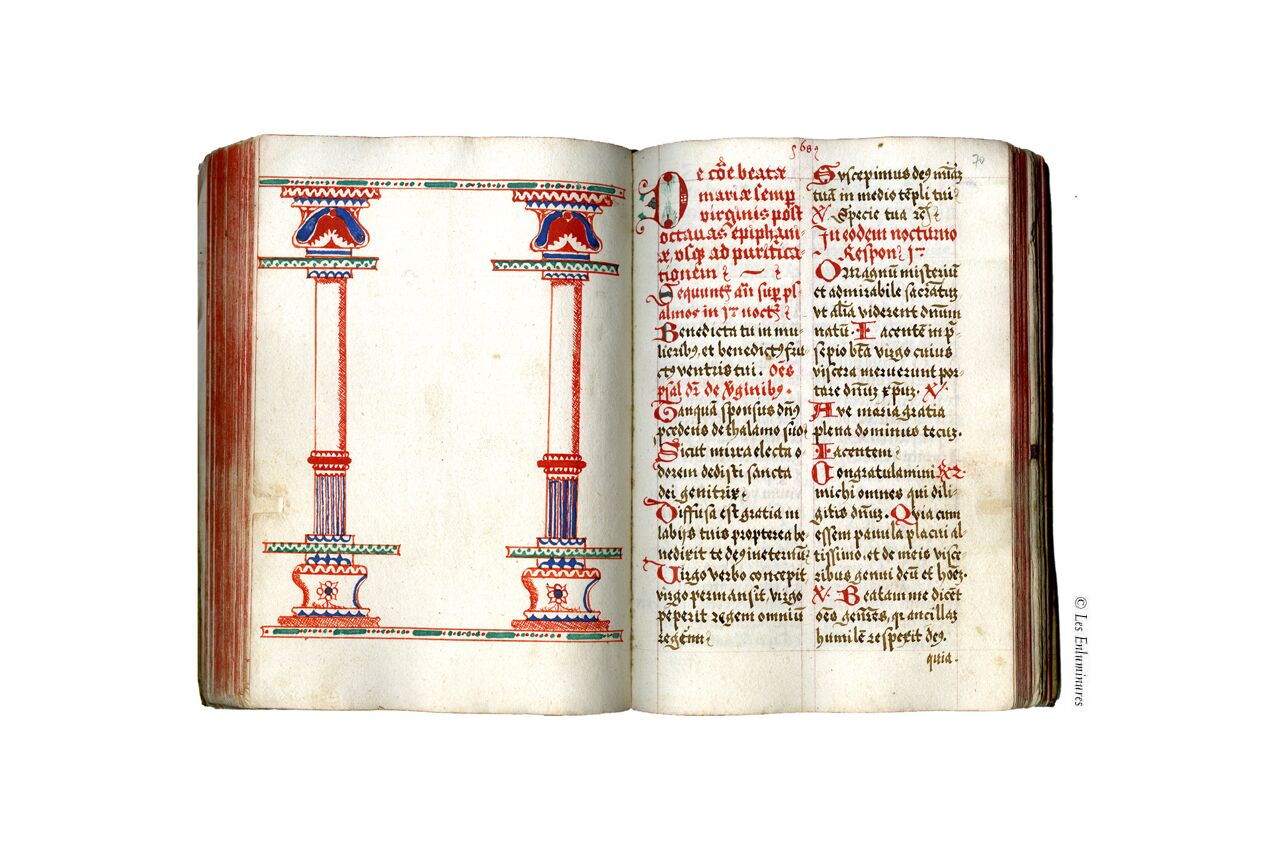 68
70
De cōe beatæ
mariæ semp
virginis post
octavas epiphani-
æ, usq; ad purifica-
tionem
Sequunt añ sup ps
almos in 1º noct
Benedicta tu in mu-
lierib9, et benedict9 fru-
ct9 ventris tui. oēs
psal dr̄ de v̄ginib9.
Tanquā sponsus dn̄s
pcedens de thalamo suo
Sicut mirra electa o-
dorem dedisti sancta
dei genitrix
Diffusa est gratia in
labijs tuis propterea be-
nedixit te de9 ineternū
Virgo verbo concepit
virgo permansit, virgo
peperit regem omniū
regem
Suscepimus de9 miāz
tuā in medio tēpli tui
V. Specie tua
In eodem nocturno
Respon 1º
O magnū misteriū
et admirabile sacrātuz
vt alīa viderent dn̄um
natū. Iacentē in p̄-
sepio btā virgo cuius
viscera meruerunt por-
tare dn̄uz xp̄uz. V.
Ave maria gratia
plena dominus tecuz.
Iacentem
Congratulamini R2
michi omnes qui dili-
gitis dn̄uz. Quia cum
essem parvula placui al-
tissimo, et de meis visce-
ribus genui deū et hoēz.
V. Beatam me dicēt
oēs gen̄es, qr ancillaz
humilē respexit de9.
quia.
© Les Enluminures